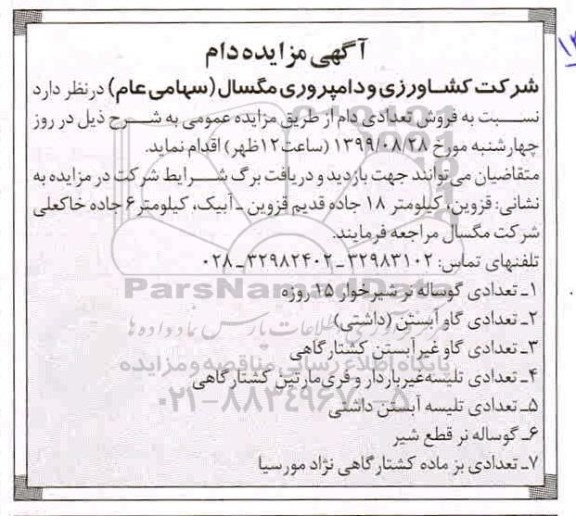 آگهی مزایده دام
شرکت کشاورزی و دامپروری مگسال (سهامی عام) در نظر دارد
نسبت به فروش تعدادی دام از طریق مزایده عمومی به شرح ذیل در روز
چهارشنبه مورخ ۱۳۹۹/۰۸/۲۸ (ساعت ۱۲ ظهر) اقدام نماید.
متقاضیان می توانند جهت بازدید و دریافت برگ شرایط شرکت در مزایده به
نشانی: قزوین، کیلومتر ۱۸ جاده قدیم قزوین ـ آبیک، کیلومتر ۶ جاده خاکعلی
شرکت مگسال مراجعه فرمایند.
تلفنهای تماس: ۳۲۹۸۳۱۰۲ ـ ۳۲۹۸۲۴۰۲ ـ ۰۲۸
۱ـ تعدادی گوساله نر شیرخوار ۱۵ روزه
۲ـ تعدادی گاو آبستن (داشتی)
۳ـ تعدادی گاو غیر آبستن کشتارگاهی
۴ـ تعدادی تلیسه غیر باردار و فری مارتین کشتارگاهی
۵ـ تعدادی تلیسه آبستن داشتی
۶ـ گوساله نر قطع شیر
۷ـ تعدادی بز ماده کشتارگاهی نژاد مورسیا
ParsNamadData
پایگاه اطلاع رسانی مناقصه و مزایده
۰۲۱-۸۸۳۴۹۶۷۰-۵